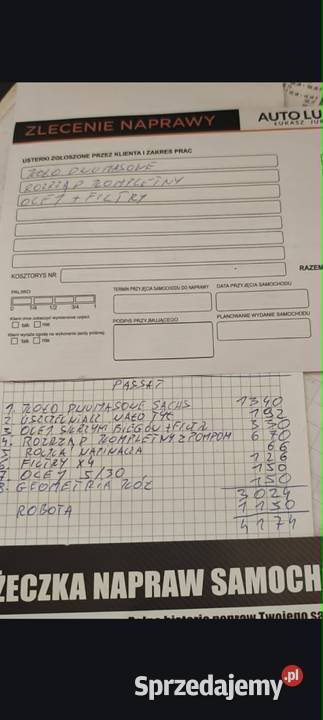 ZLECENIE NAPRAWY
AUTO LU
ŁUKASZ JUR
USTERKI ZGŁOSZONE PRZEZ KLIENTA I ZAKRES PRAC
KOŁO DWUMASOWE
ROZRZĄD KOMPLETNY
OLEJ + FILTRY
KOSZTORYS NR:
RAZEM
PALIWO
0 1/4 1/2 3/4 1
TERMIN PRZYJĘCIA SAMOCHODU DO NAPRAWY
DATA PRZYJĘCIA SAMOCHODU
Klient chce zobaczyć wymienione części
tak nie
Klient wyraża zgodę na wykonanie jazdy próbnej
tak nie
PODPIS PRZYJMUJĄCEGO
PLANOWANE WYDANIE SAMOCHODU
PASSAT
1. KOŁO DWUMASOWE SACHS 1340
2 USZCZELNIACZ WAŁO TYŁ 192
3 OLEJ SKRZYNI BIEGÓW + FILTR 330
4. ROZRZĄD KOMPLETNY Z POMPOM 670
5 ROLKA NAPINACZA 66
6 FILTRY X4 126
7 OLEJ 5/30 150
8. GEOMETRIA KÓŁ 150
3024
ROBOTA 1150
4174
ŻECZKA NAPRAW SAMOCH
Sprzedajemy.pl